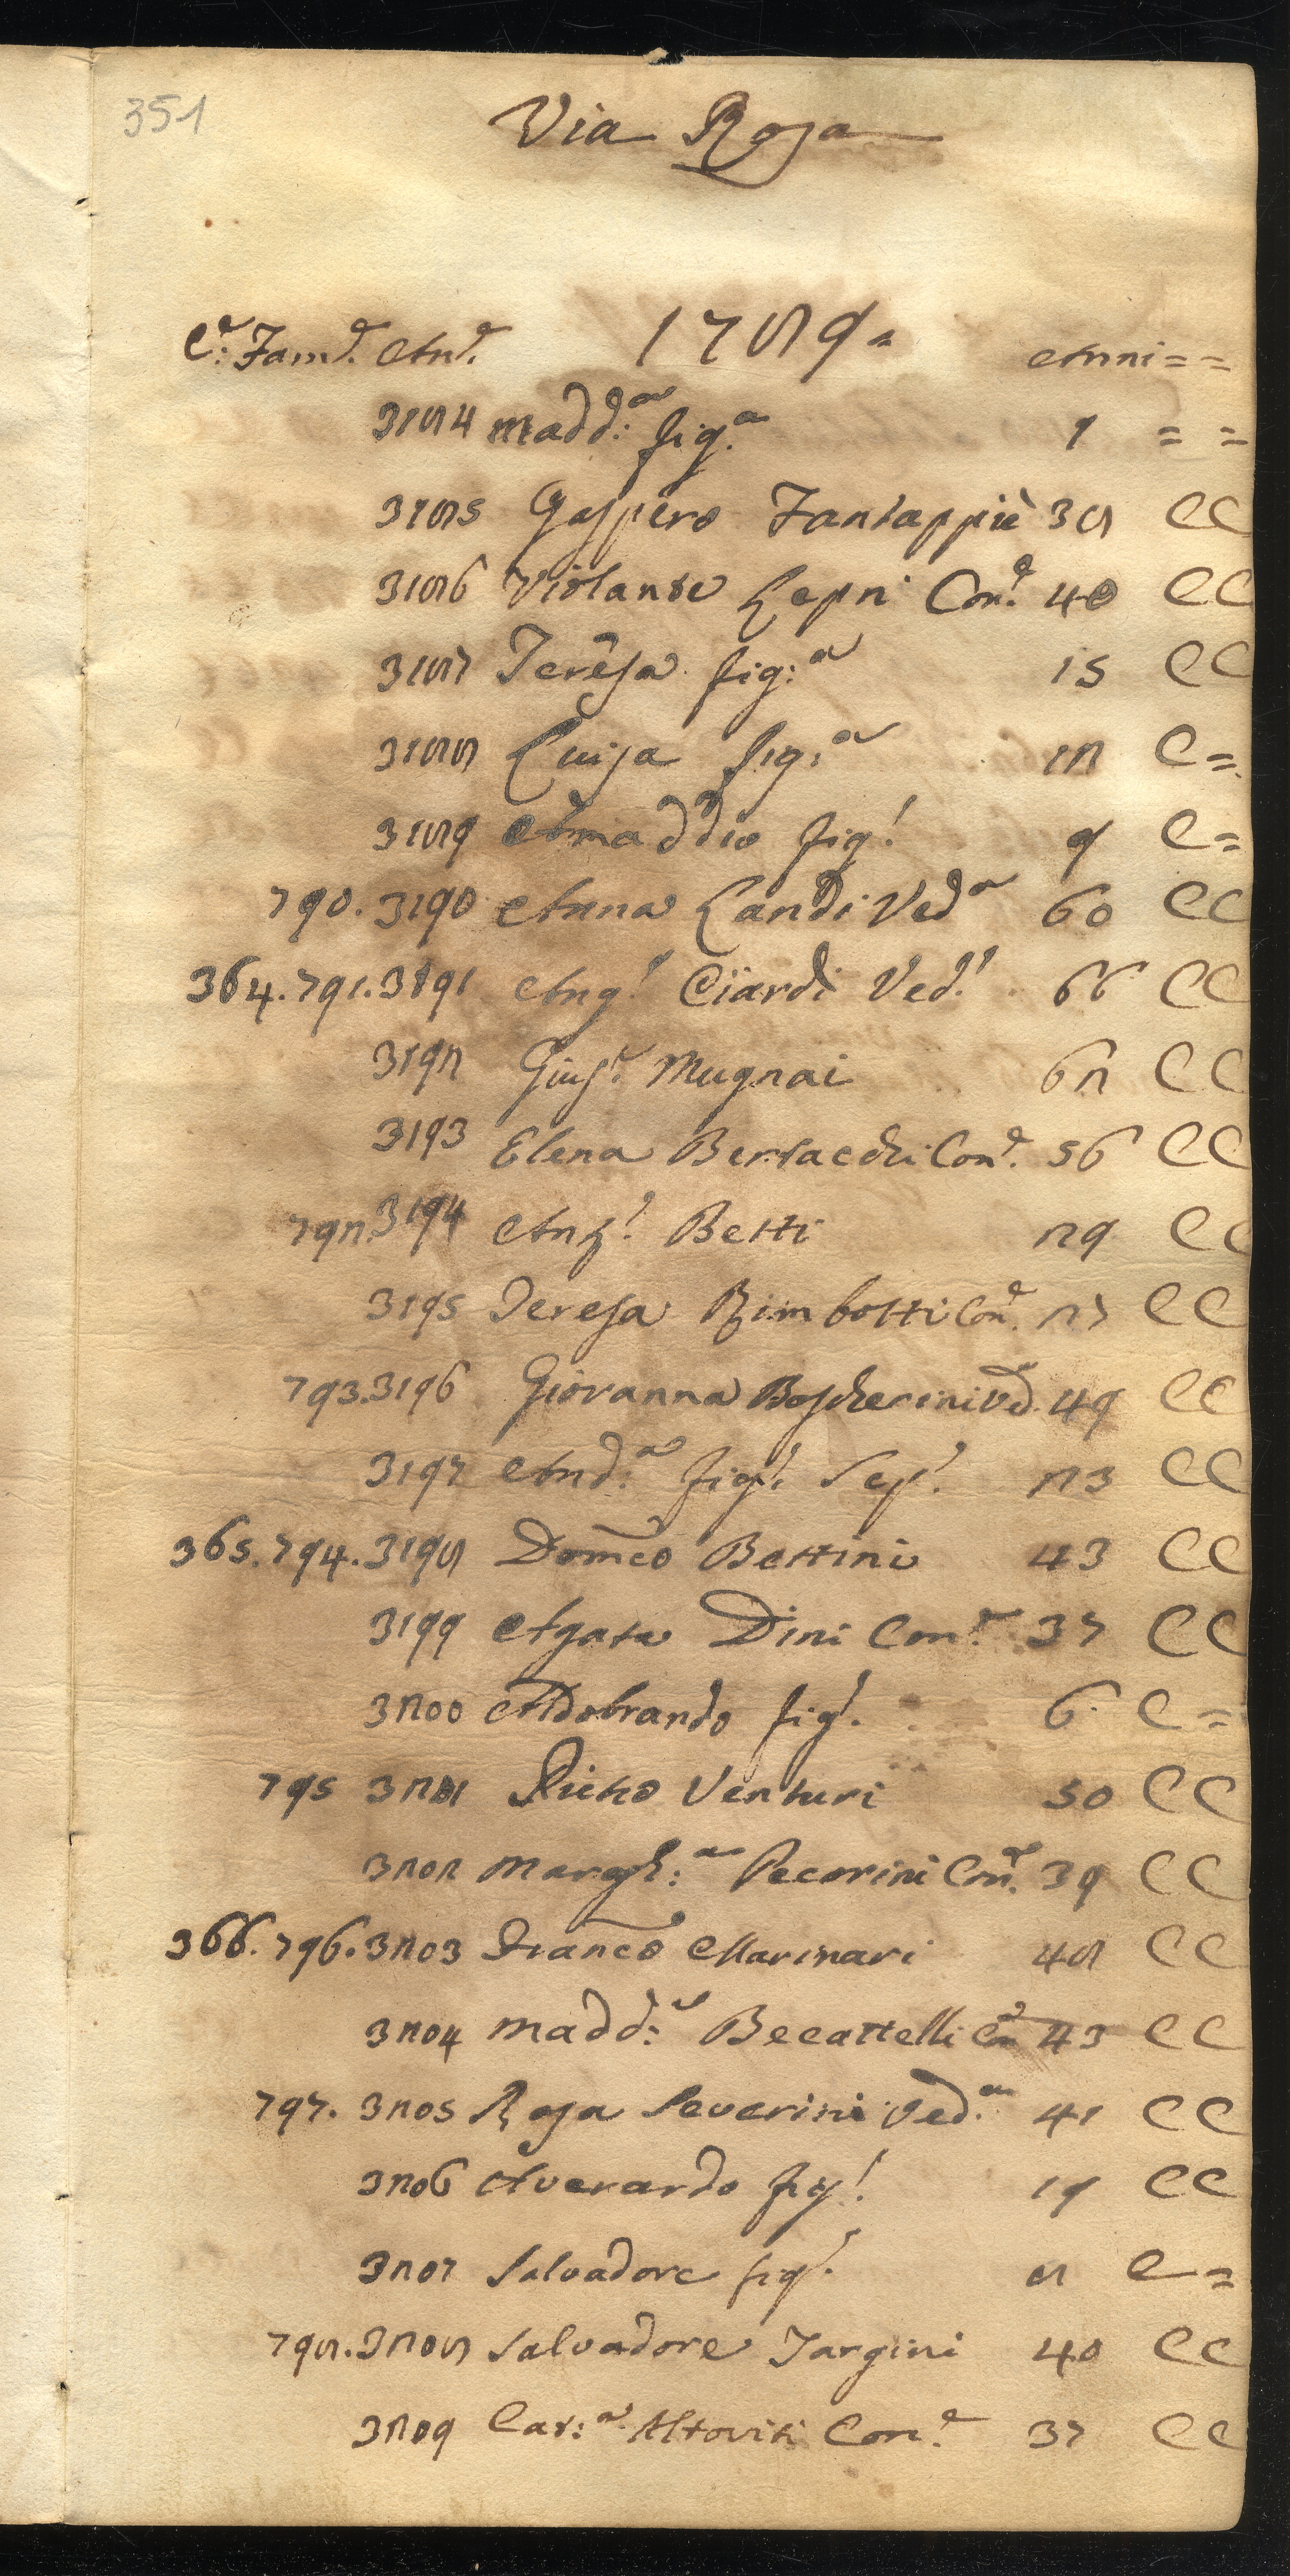 351
Via Rosa
C.e Fam.e An.e 1789= Anni = =
3184 Madd:a fig:a 1 = =
3185 Gaspero Fantappiè 38 CC
3186 Violante Lepri Con.e 40 CC
3187 Teresa fig:a 15 CC
3188 Luisa fig:a 12 C=
3189 Amaddio fig! 9 C=
790. 3190 Anna Landi Ved.a 60 CC
364. 791. 3191 Ang! Ciardi Ved! 66 CC
3192 Gius.e Mugnai 62 CC
3193 Elena Bertacchi Con.e 56 CC
792. 3194 Ant! Betti 29 CC
3195 Teresa Rimbotti Con.e 27 CC
793. 3196 Giovanna Boscherini Ved. 49 CC
3197 And:a fig! Sep! 23 CC
365. 794. 3198 Domco Bettini 43 CC
3199 Agata Dini Con.e 37 CC
3200 Aldobrando fig! 6 C=
795 3201 Pietro Venturi 50 CC
3202 Margh:a Pecorini Con.e 39 CC
366. 796. 3203 Franco Marinari 48 CC
3204 Madd:a Becattelli Con 43 CC
797. 3205 Rosa Severini Ved.a 41 CC
3206 Averardo fig! 19 CC
3207 Salvadore fig! 8 C=
798. 3208 Salvadore Targini 40 CC
3209 Cat:a Altoviti Con.e 37 CC